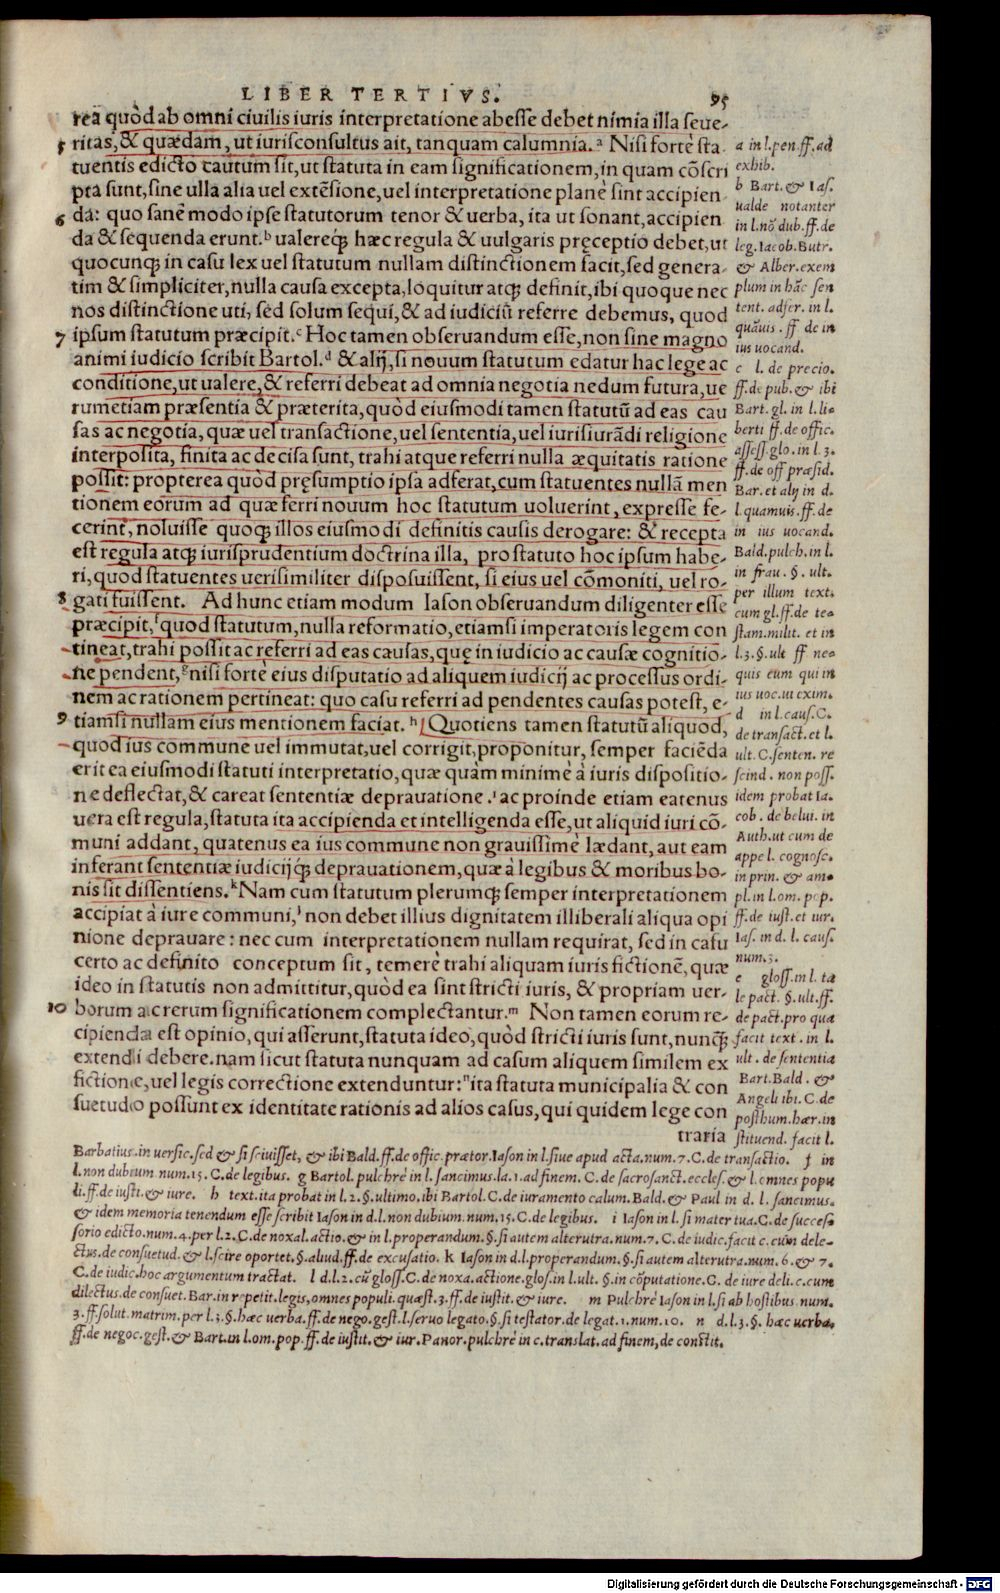 LIBER TERTIVS. 95
rea quòd ab omni ciuilis iuris interpretatione abesse debet nimia illa seue-
5 ritas, & quædam, ut iurisconsultus ait, tanquam calumnia.ᵃ Nisi fortè sta-
tuentis edicto cautum sit, ut statuta in eam significationem, in quam cõscri
pta sunt, sine ulla alia uel extẽsione, uel interpretatione planè sint accipien
6 da: quo sanè modo ipse statutorum tenor & uerba, ita ut sonant, accipien
da & sequenda erunt.ᵇ ualereq́; hæc regula & uulgaris pręceptio debet, ut
quocunq; in casu lex uel statutum nullam distinctionem facit, sed genera-
tim & simpliciter, nulla causa excepta, loquitur atq; definit, ibi quoque nec
nos distinctione uti, sed solum sequi, & ad iudiciũ referre debemus, quod
7 ipsum statutum præcipit.ᶜ Hoc tamen obseruandum esse, non sine magno
animi iudicio scribit Bartol.ᵈ & alij, si nouum statutum edatur hac lege ac
conditione, ut ualere, & referri debeat ad omnia negotia nedum futura, ue
rumetiam præsentia & præterita, quòd eiusmodi tamen statutũ ad eas cau
sas ac negotia, quæ uel transactione, uel sententia, uel iurisiurãdi religione
interposita, finita ac decisa sunt, trahi atque referri nulla æquitatis ratione
possit: propterea quòd pręsumptio ipsa adferat, cum statuentes nullã men
tionem eorum ad quæ ferri nouum hoc statutum uoluerint, expresse fe-
cerint, noluisse quoq; illos eiusmodi definitis causis derogare: & recepta
est regula atq; iurisprudentium doctrina illa, pro statuto hoc ipsum habe-
ri, quod statuentes uerisimiliter disposuissent, si eius uel cõmoniti, uel ro-
8 gati fuissent. Ad hunc etiam modum Iason obseruandum diligenter esse
præcipit,ᶠ quod statutum, nulla reformatio, etiamsi imperatoris legem con
tineat, trahi possit ac referri ad eas causas, quę in iudicio ac causæ cognitio-
ne pendent,ᵍ nisi fortè eius disputatio ad aliquem iudicij ac processus ordi-
nem ac rationem pertineat: quo casu referri ad pendentes causas potest, e-
9 tiamsi nullam eius mentionem faciat.ʰ Quotiens tamen statutũ aliquod,
quod ius commune uel immutat, uel corrigit, proponitur, semper faciẽda
erit ea eiusmodi statuti interpretatio, quæ quàm minimè à iuris dispositio-
ne deflectat, & careat sententiæ deprauatione.ⁱ ac proinde etiam eatenus
uera est regula, statuta ita accipienda et intelligenda esse, ut aliquid iuri cõ-
muni addant, quatenus ea ius commune non grauissimè lædant, aut eam
inferant sententiæ iudicijq́; deprauationem, quæ à legibus & moribus bo-
nis sit dissentiens.ᵏ Nam cum statutum plerumq; semper interpretationem
accipiat à iure communi,ˡ non debet illius dignitatem illiberali aliqua opi
nione deprauare: nec cum interpretationem nullam requirat, sed in casu
certo ac definito conceptum sit, temerè trahi aliquam iuris fictionẽ, quæ
ideo in statutis non admittitur, quòd ea sint stricti iuris, & propriam uer-
10 borum ac rerum significationem complectantur.ᵐ Non tamen eorum re-
cipienda est opinio, qui asserunt, statuta ideo, quòd stricti iuris sunt, nunq̃;
extendi debere. nam sicut statuta nunquam ad casum aliquem similem ex
fictione, uel legis correctione extenduntur:ⁿ ita statuta municipalia & con
suetudo possunt ex identitate rationis ad alios casus, qui quidem lege con
traria
a in l. pen. ff. ad
exhib.
b Bart. & Ias.
ualde notanter
in l. nõ dub. ff. de
leg. Iacob. Butr.
& Alber. exem
plum in hãc sen
tent. adfer. in l.
quãuis. ff. de in
ius uocand.
c l. de precio.
ff. de pub. & ibi
Bart. gl. in l. li-
berti ff. de offic.
assess. glo. in l. 3.
ff. de off præsid.
Bar. et alij in d.
l. quamuis. ff. de
in ius uocand.
Bald. pulch. in l.
in frau. §. ult.
per illum text.
cum gl. ff. de te-
stam. milit. et in
l. 3. §. ult ff ne-
quis eum qui in
ius uoc. ut exim.
d in l. caus. C.
de transact. et l.
ult. C. senten. re
scind. non poss.
idem probat Ia.
cob. de belui. in
Auth. ut cum de
appel. cognosc.
in prin. & am-
pl. in l. om. pop.
ff. de iust. et iur.
Ias. in d. l. caus.
num. 3.
e gloss. in l. ta
le pact. §. ult. ff.
de pact. pro qua
facit text. in l.
ult. de sententia
Bart. Bald. &
Angeli ibi. C. de
posthum. hær. in
stituend. facit l.
Barbatius. in uersic. sed & si sciuisset, & ibi Bald. ff. de offic. prætor. Iason in l. siue apud acta. num. 7. C. de transactio. f in
l. non dubium num. 15. C. de legibus. g Bartol. pulchrè in l. sancimus. la. 1. ad finem. C. de sacrosanct. eccles. & l. omnes popu
li. ff. de iusti. & iure. h text. ita probat in l. 2. §. ultimo. ibi Bartol. C. de iuramento calum. Bald. & Paul in d. l. sancimus.
& idem memoria tenendum esse scribit Iason in d. l. non dubium. num. 15. C. de legibus. i Iason in l. si mater tua. C. de succes-
sorio edicto. num. 4. per l. 2. C. de noxal. actio. & in l. properandum. §. si autem alterutra. num. 7. C. de iudic. facit c. cum dele-
ctus. de consuetud. & l. scire oportet. §. aliud. ff. de excusatio. k Iason in d. l. properandum. §. si autem alterutra. num. 6. & 7.
C. de iudic. hoc argumentum tractat. l d. l. 2. cũ gloss. C. de noxa. actione. glos. in l. ult. §. in cõputatione. C. de iure deli. c. cum
dilectus. de consuet. Bar. in repetit. legis, omnes populi. quæst. 3. ff. de iustit. & iure. m Pulchrè Iason in l. si ab hostibus. num.
3. ff. solut. matrim. per l. 3. §. hæc uerba. ff. de nego. gest. l. seruo legato. §. si testator. de legat. 1. num. 10. n d. l. 3. §. hæc uerba.
ff. de negoc. gest. & Bart. in l. om. pop. ff. de iustit. & iur. Panor. pulchrè in c. translat. ad finem, de constit.
Digitalisierung gefördert durch die Deutsche Forschungsgemeinschaft - DFG